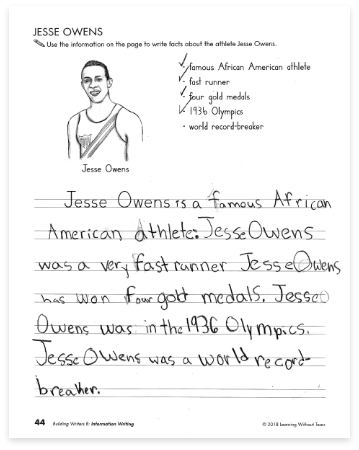 JESSE OWENS
Use the information on the page to write facts about the athlete Jesse Owens.
famous African American athlete
fast runner
four gold medals
1936 Olympics
• world record-breaker
Jesse Owens
Jesse Owens is a famous African
American athlete. Jesse Owens
was a very fast runner Jesse Owens
has won four gold medals. Jesse
Owens was in the 1936 Olympics.
Jesse Owens was a world record-
breaker.
44 Building Writers B: Information Writing © 2018 Learning Without Tears